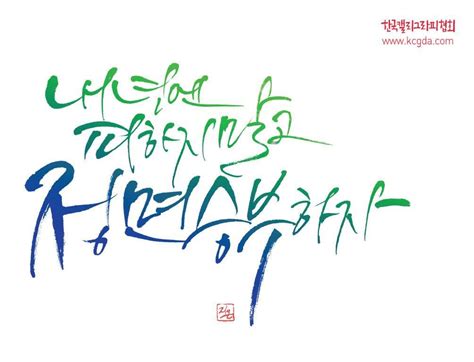 한국캘리그라피협회
www.kcgda.com
내년엔
피하지말고
정면승부하자